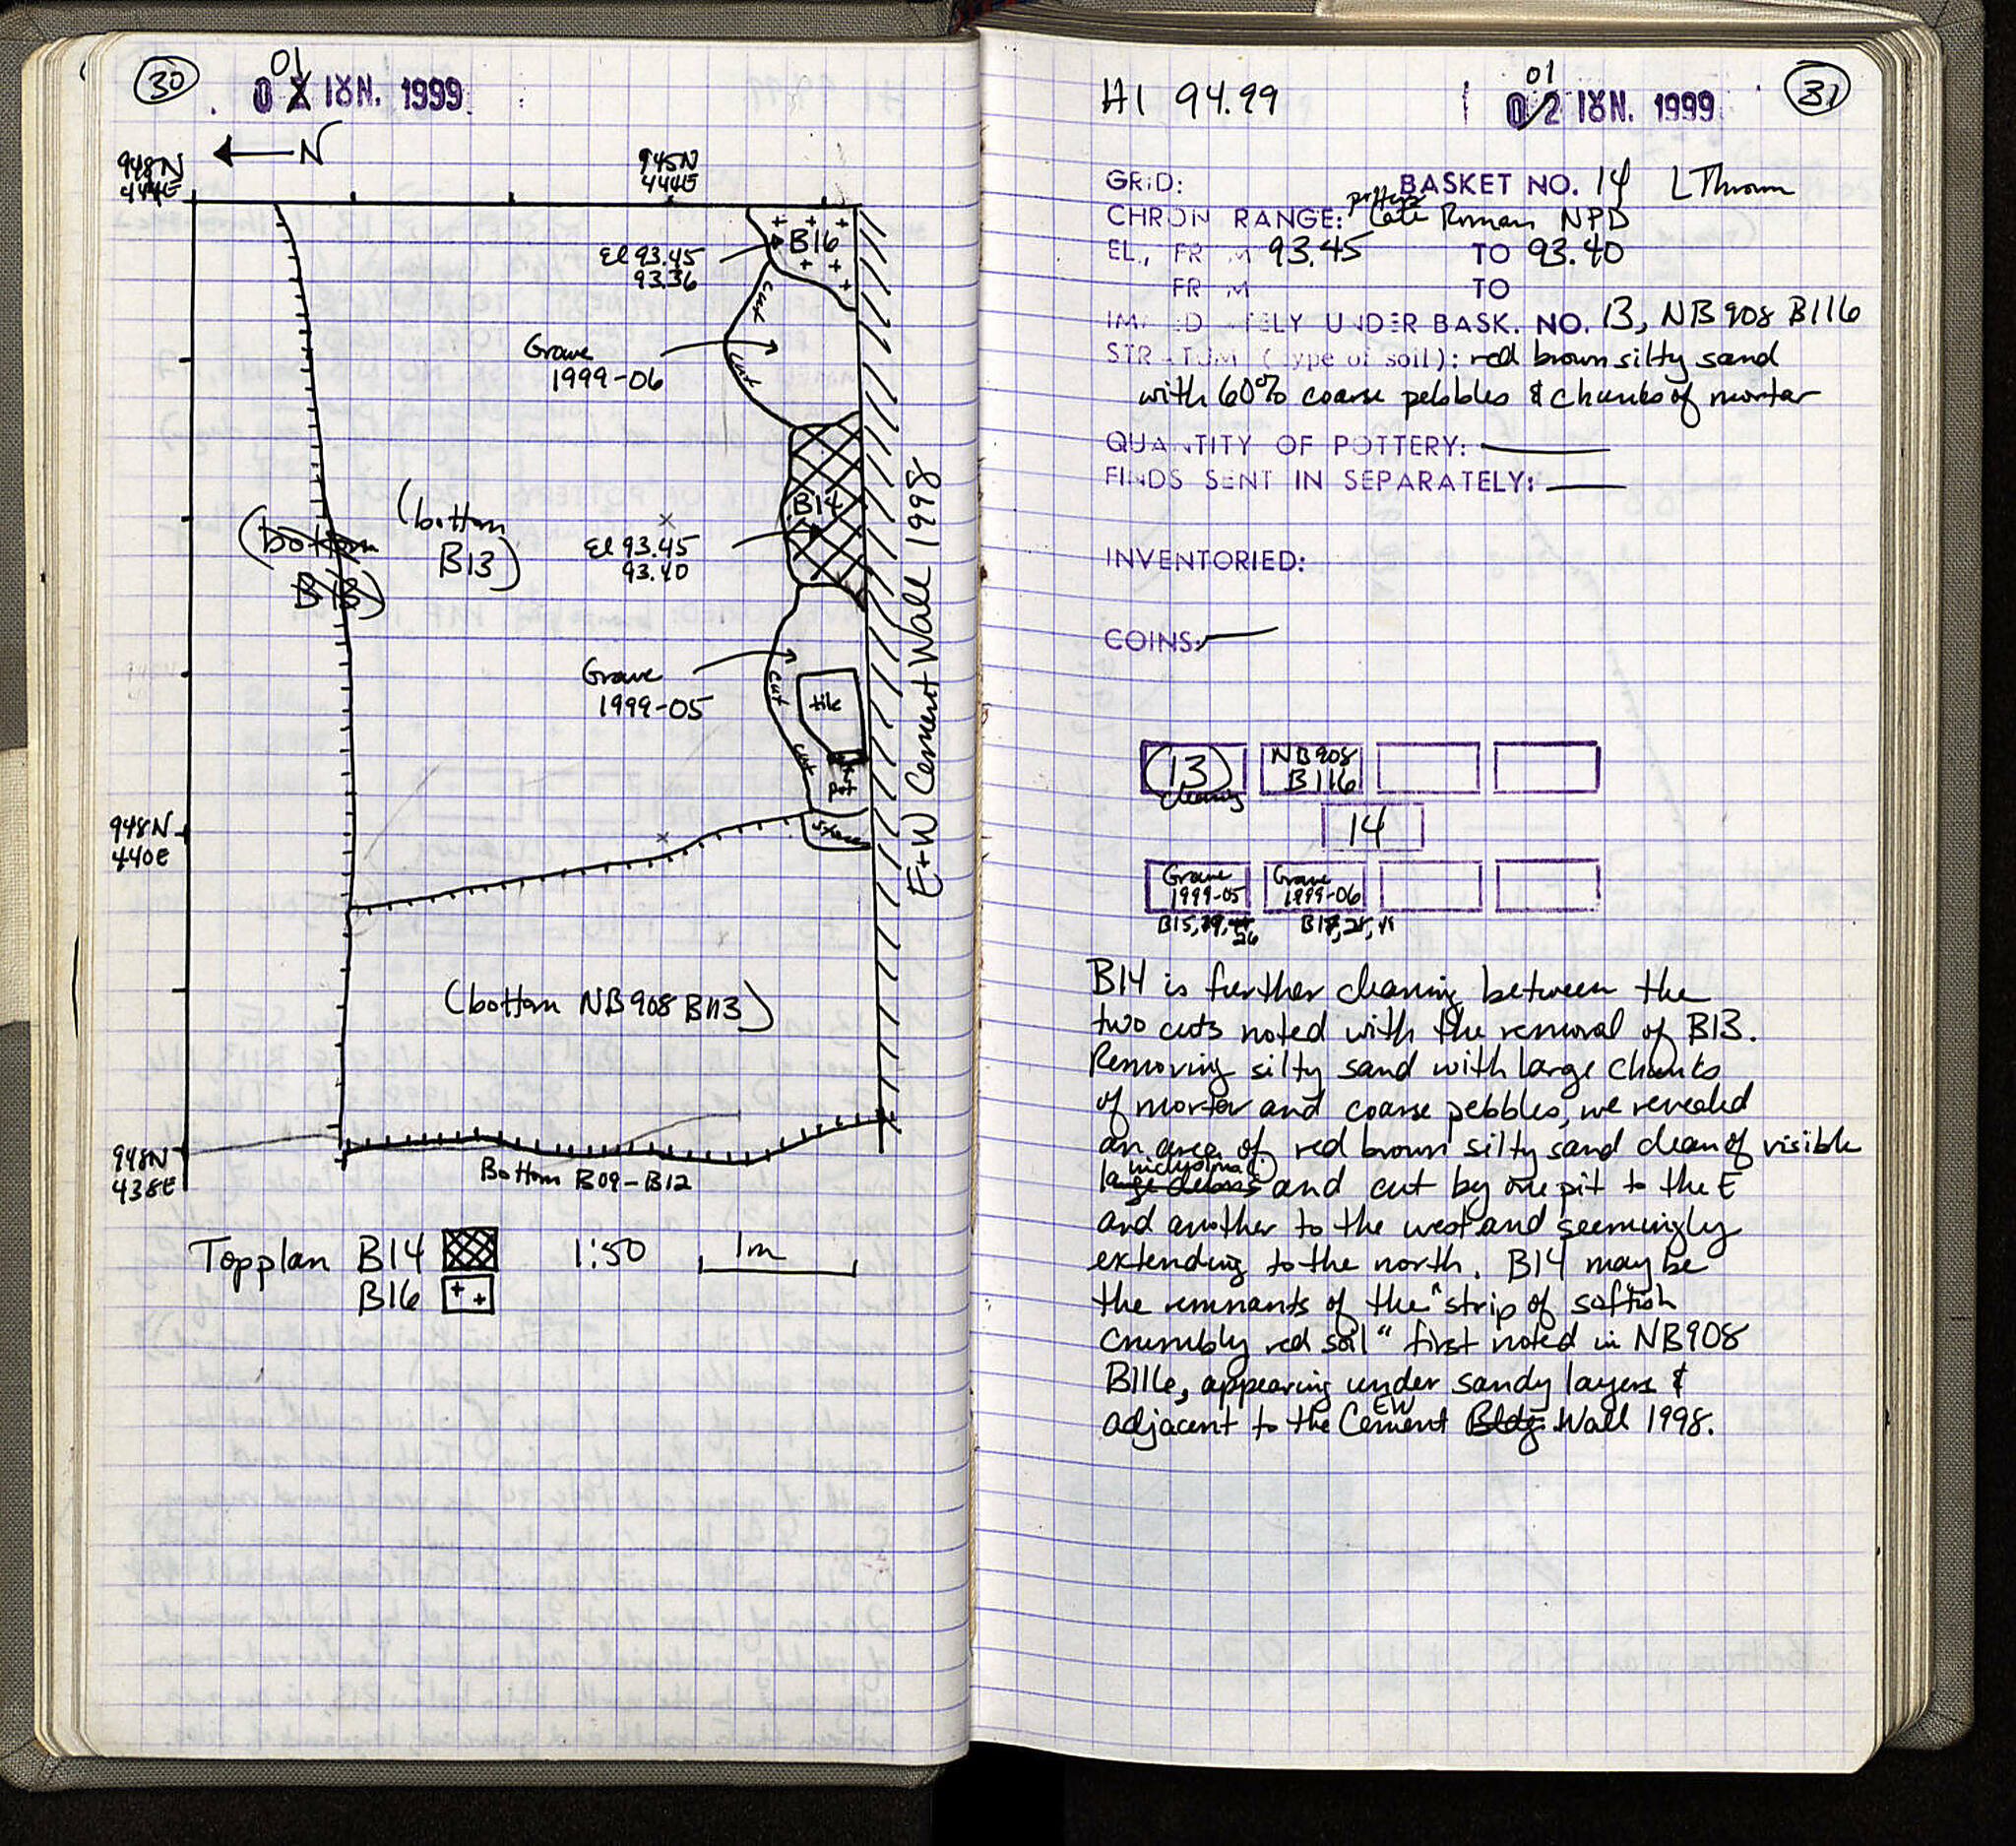 30
01
02 ΙΟΥΝ. 1999
N
948N
444E
945N
444E
B16
El 93.45
93.36
cut
Grave
1999-06
cut
B14
(bottom
B13)
(bottom
B13)
El 93.45
93.40
E-W Cement Wall 1998
Grave
1999-05
cut
tile
cut
pot
stone
948N
440E
(bottom NB 908 B113)
948N
438E
Bottom B09-B12
Topplan B14 1:50 1m
B16
H1 94.99
01
02 ΙΟΥΝ. 1999
31
GRID: BASKET NO. 14 L Thrown
CHRON RANGE: pottery Late Roman NPD
EL., FR M 93.45 TO 93.40
FR M TO
IM ED TELY UNDER BASK. NO. 13, NB 908 B116
STR TUM (type of soil): red brown silty sand
with 60% coarse pebbles & chunks of mortar
QUANTITY OF POTTERY: —
FINDS SENT IN SEPARATELY: —
INVENTORIED:
COINS: —
13 NB908
cleaning B116
14
Grave Grave
1999-05 1999-06
B15, 26 B17, 25,
B14 is further cleaning between the
two cuts noted with the removal of B13.
Removing silty sand with large chunks
of mortar and coarse pebbles, we revealed
an area of red brown silty sand clean of visible
inclusions
large debris and cut by one pit to the E
and another to the west and seemingly
extending to the north. B14 may be
the remnants of the "strip of softish
crumbly red soil" first noted in NB908
B116, appearing under sandy layers &
adjacent to the EW Cement Bldg Wall 1998.